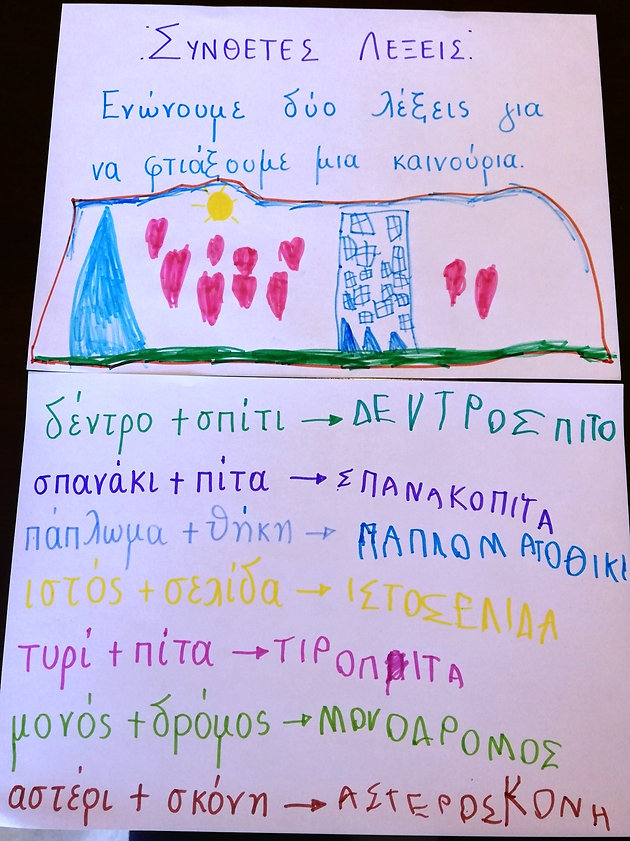 ΣΥΝΘΕΤΕΣ ΛΕΞΕΙΣ
Ενώνουμε δύο λέξεις για
να φτιάξουμε μια καινούρια.
δέντρο + σπίτι → ΔΕΝΤΡΟΣΠΙΤΟ
σπανάκι + πίτα → ΣΠΑΝΑΚΟΠΙΤΑ
πάπλωμα + θήκη → ΠΑΠΛΟΜΑΤΟΘΙΚΙ
ιστός + σελίδα → ΙΣΤΟΣΕΛΙΔΑ
τυρί + πίτα → ΤΙΡΟΠΙΤΑ
μονός + δρόμος → ΜΟΝΟΔΡΟΜΟΣ
αστέρι + σκόνη → ΑΣΤΕΡΟΣΚΟΝΗ